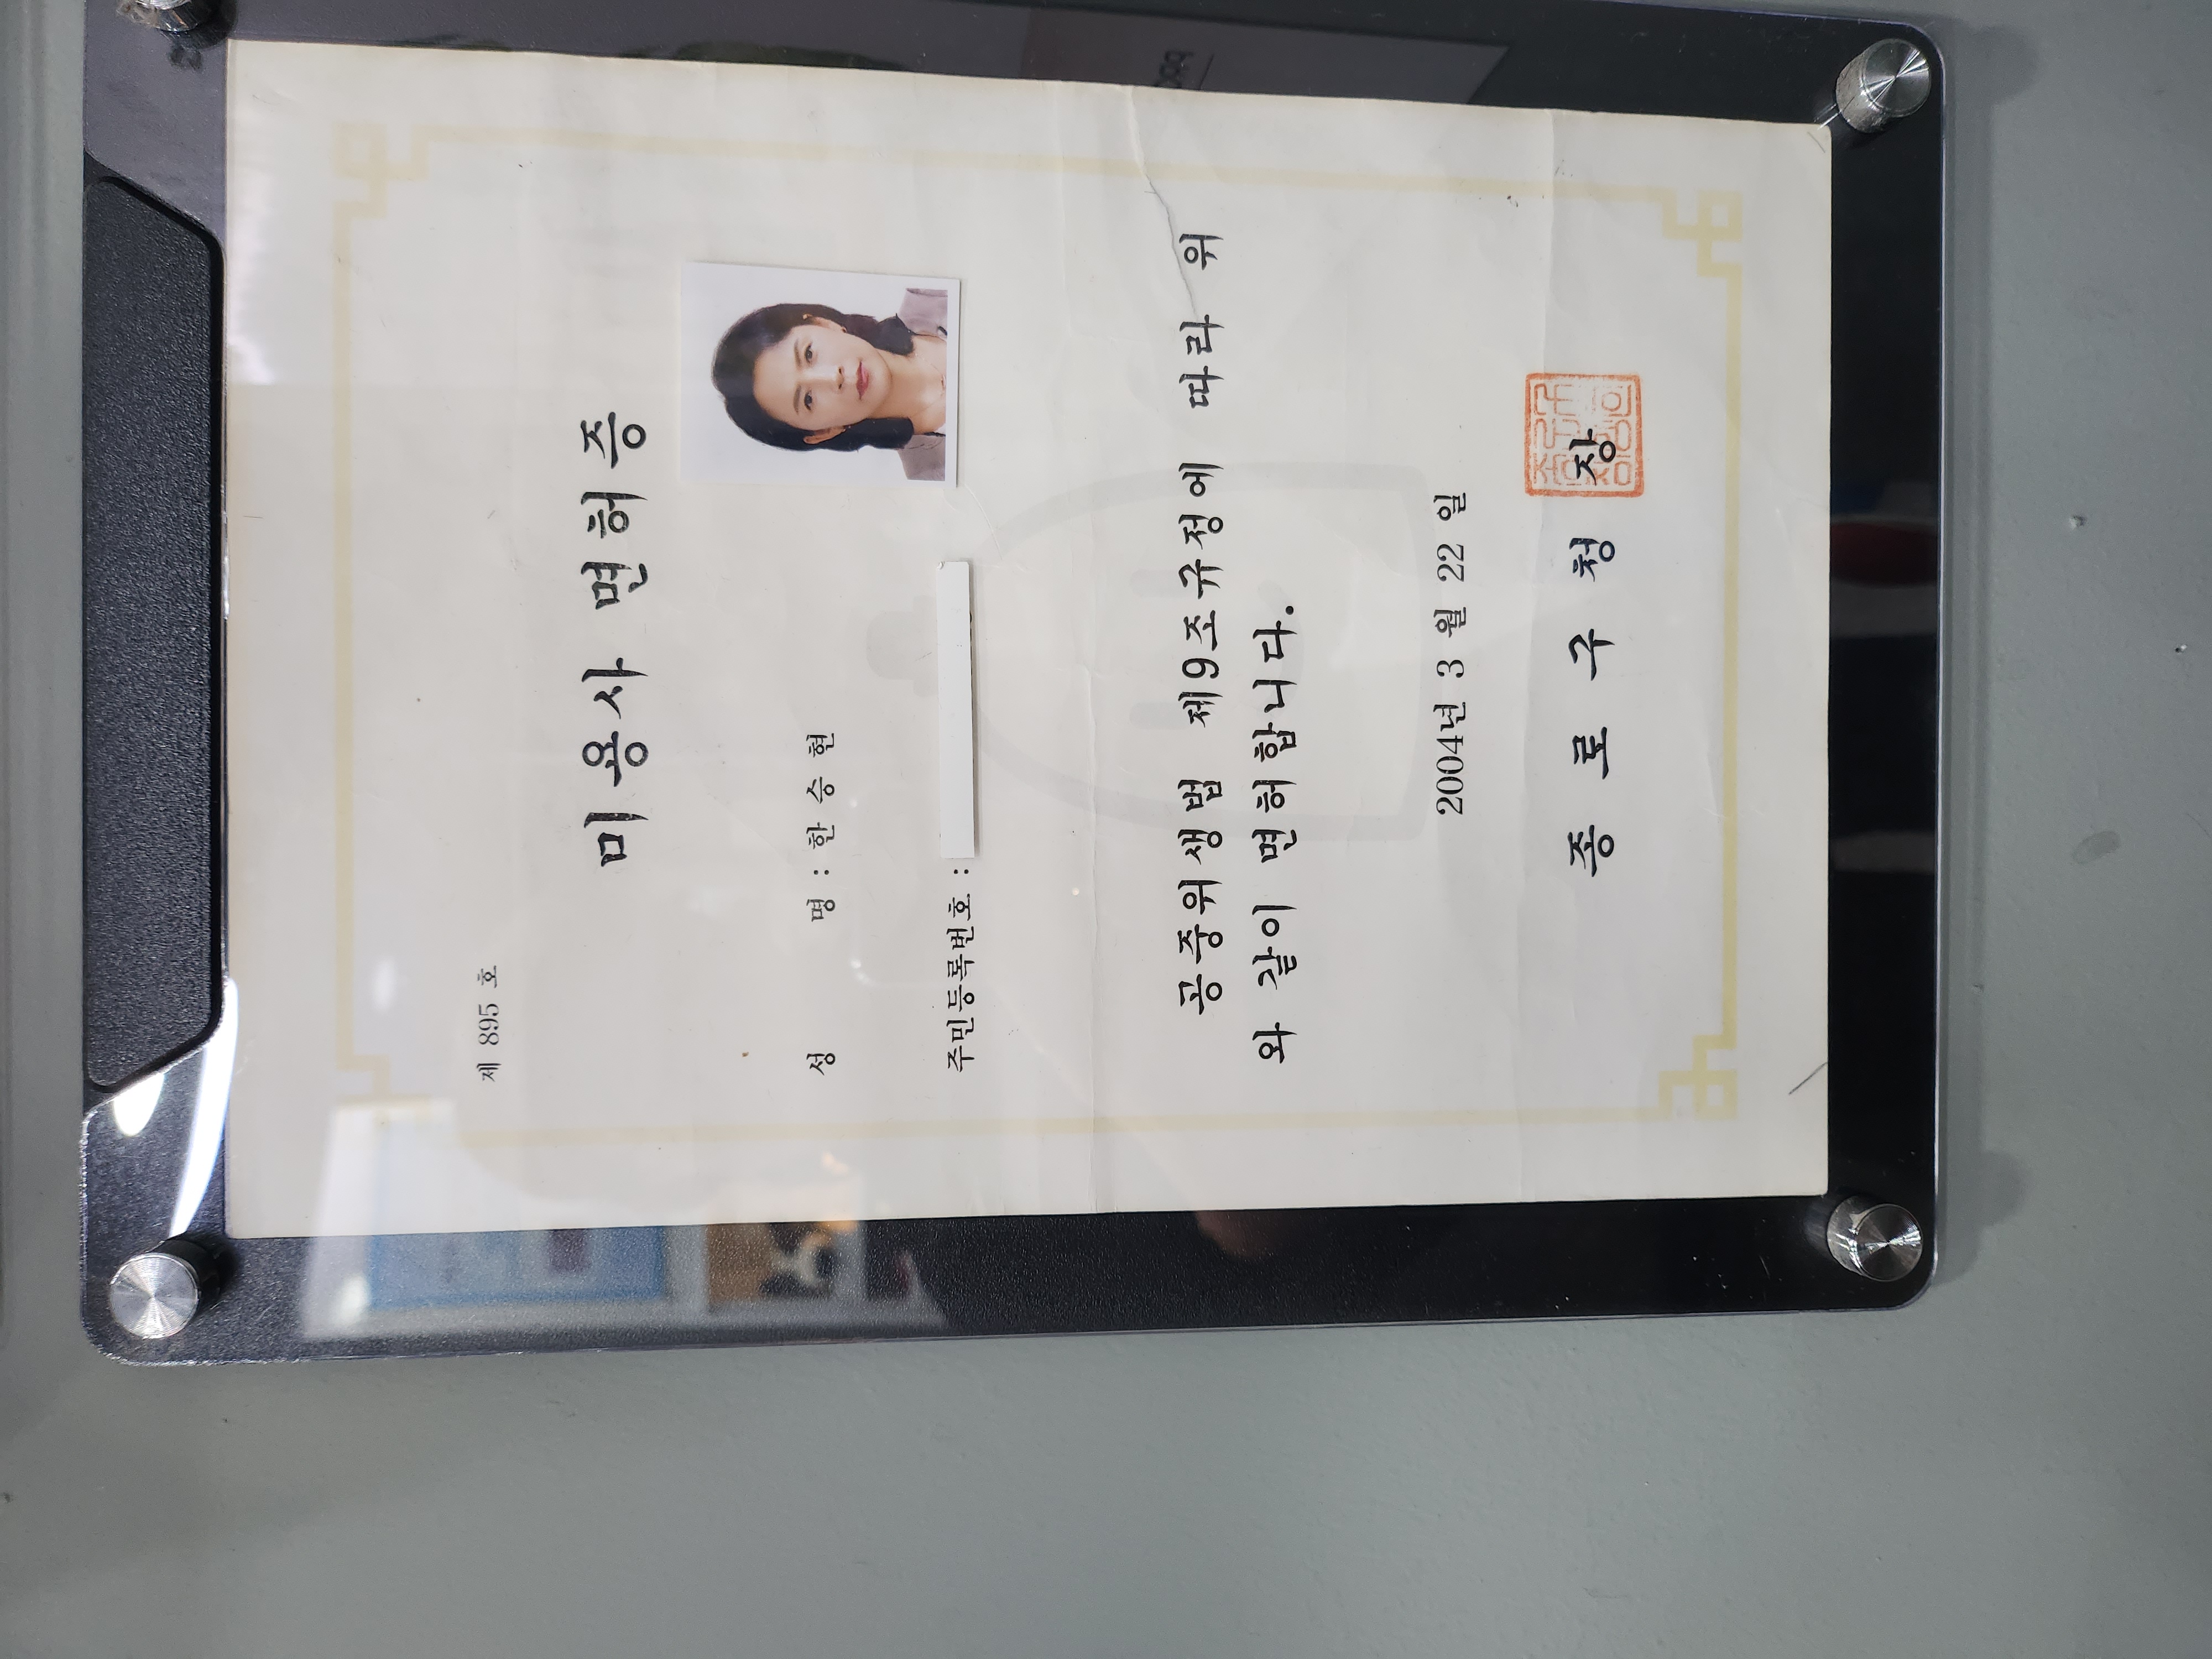 제 895 호
미용사 면허증
성 명 : 한 승 현
주민등록번호 :
공중위생법 제9조규정에 따라 위
와 같이 면허합니다.
2004년 3 월 22 일
종 로 구 청 장